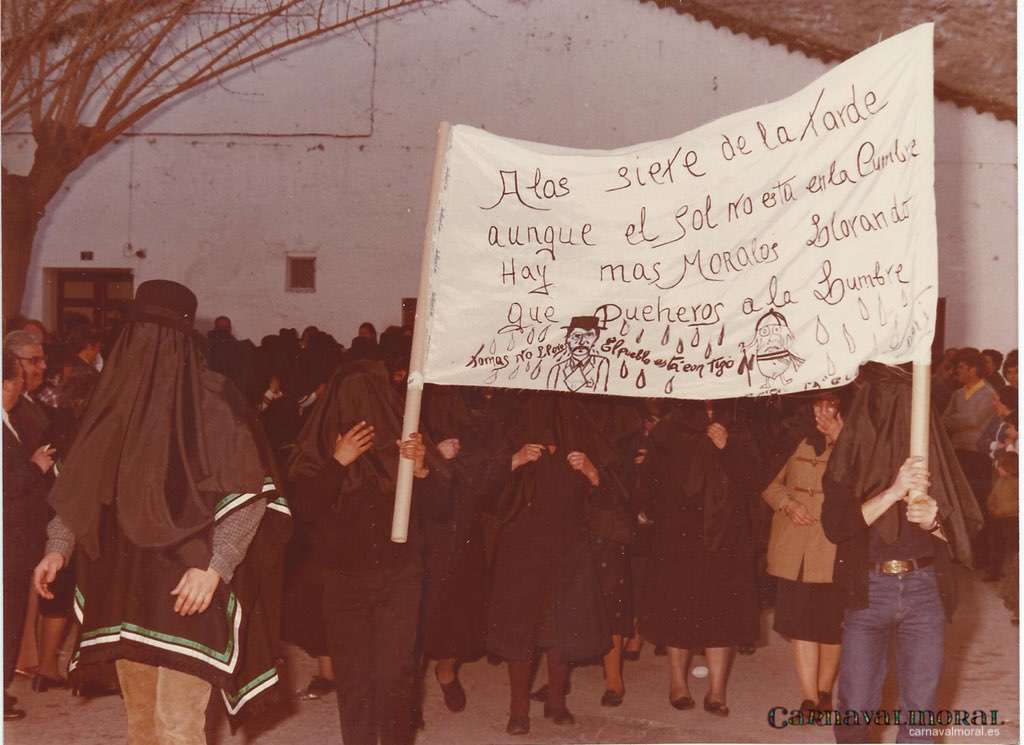 A las siete de la Tarde
aunque el Sol no está en la Cumbre
Hay mas MORALOS Llorando
que Pucheros a la Lumbre
Tomas No Llores El pueblo está con Tigo
CARNAVALMORAL
carnavalmoral.es